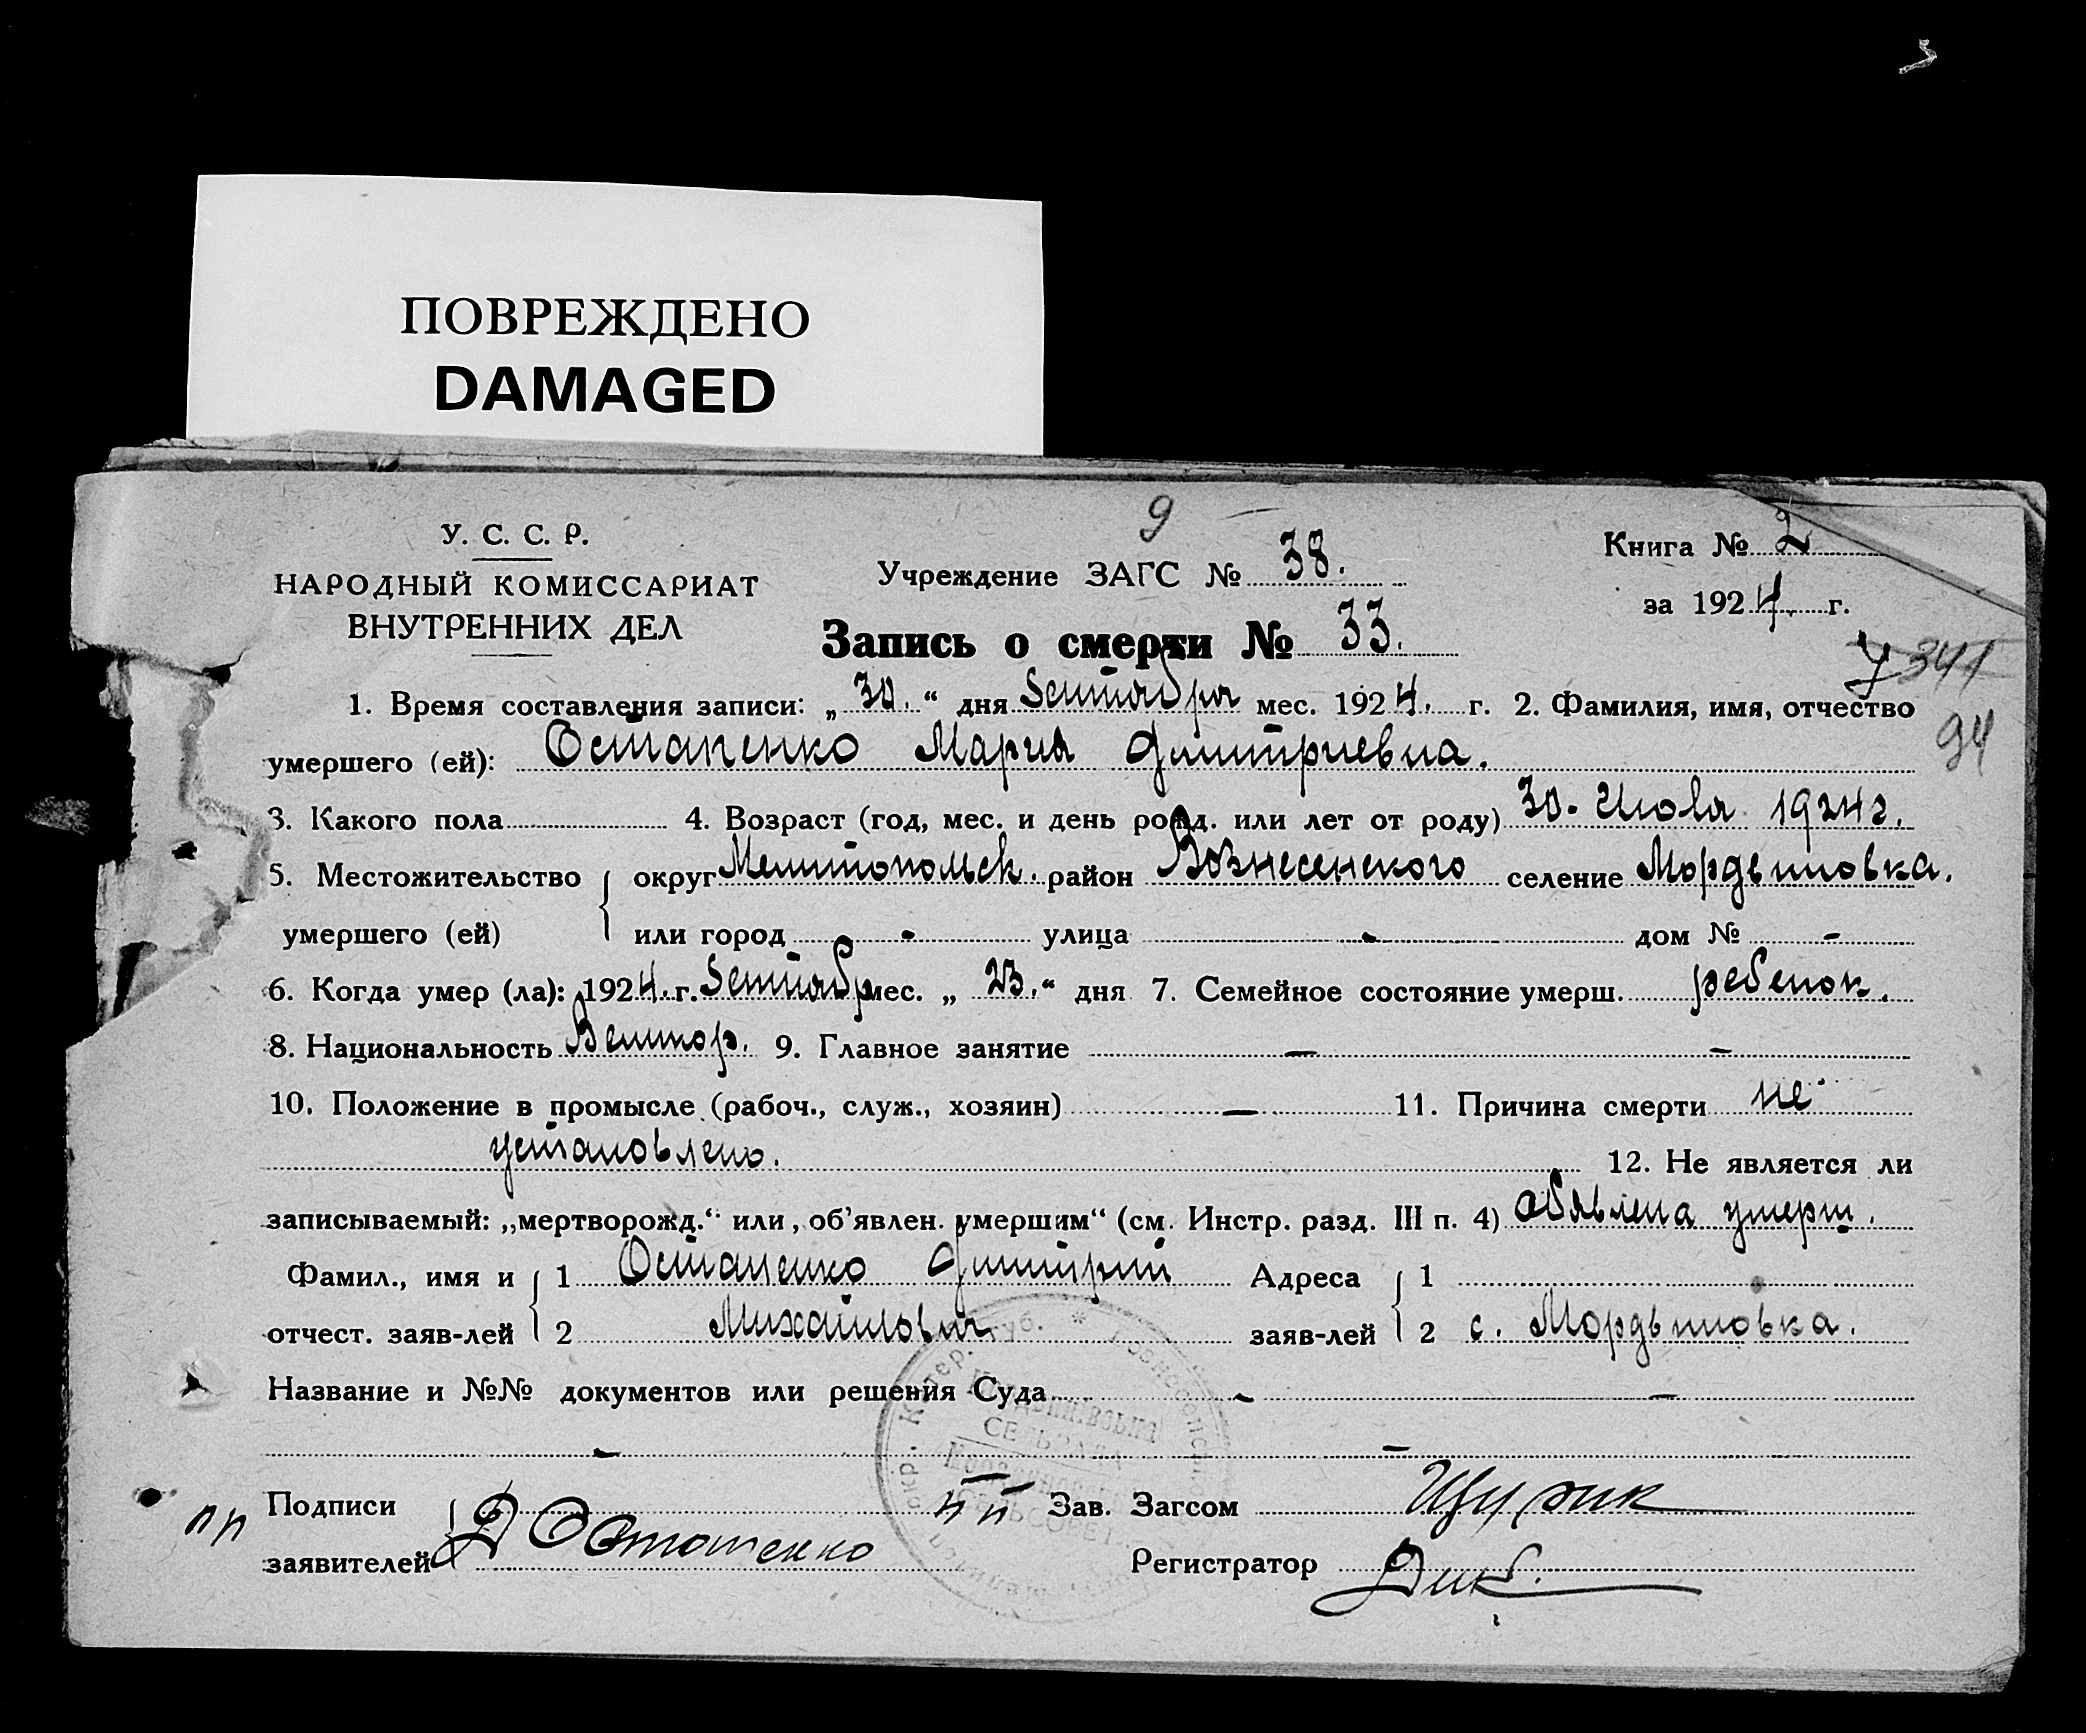 ПОВРЕЖДЕНО
DAMAGED
9
У. С. С. Р.
НАРОДНЫЙ КОМИССАРИАТ
ВНУТРЕННИХ ДЕЛ
Учреждение ЗАГС № 38.
Книга № 2
за 1924 г.
Запись о смерти № 33.
341
94
1. Время составления записи: „30.“ дня Сентября мес. 1924. г. 2. Фамилия, имя, отчество
умершего (ей): Остапенко Мария Димитриевна.
3. Какого пола 4. Возраст (год, мес. и день рожд. или лет от роду) 30. Июля 1924 г.
5. Местожительство умершего (ей) { округ Мелитопольск. район Вознесенского селение Мордвиновка.
или город - улица - дом № -
6. Когда умер (ла): 1924 г. Сентябр мес. „23.“ дня 7. Семейное состояние умерш. ребенок.
8. Национальность Великор. 9. Главное занятие — —
10. Положение в промысле (рабоч., служ., хозяин) — 11. Причина смерти не
установлено. 12. Не является ли
записываемый: „мертворожд.“ или „об'явлен. умершим“ (см. Инстр. разд. III п. 4) обявлена умерш.
Фамил., имя и { 1 Остапенко Димитрий Адреса { 1
отчест. заяв-лей 2 Михайлович заяв-лей 2 с. Мордвиновка.
Название и №№ документов или решения Суда - —
— —
Подписи Д Остапенко Зав. Загсом
заявителей Регистратор
СЕЛЬРАДА